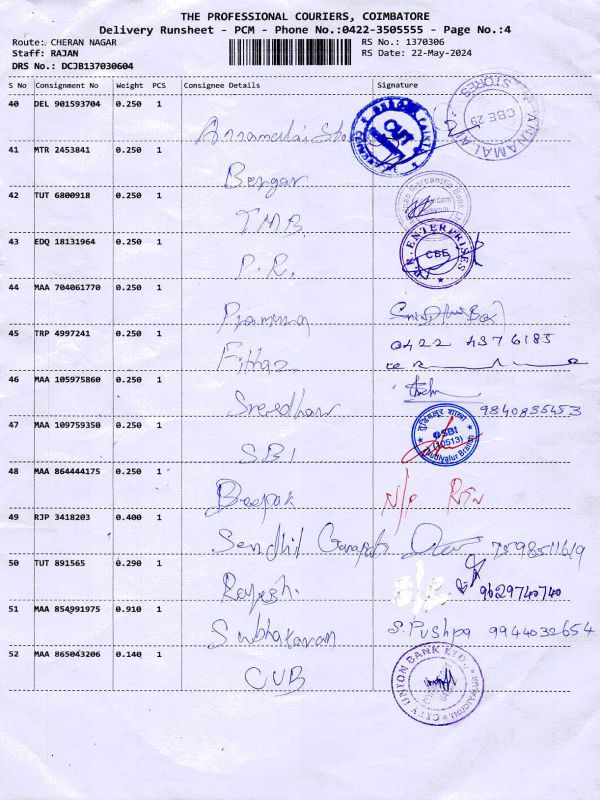 THE PROFESSIONAL COURIERS, COIMBATORE
Delivery Runsheet - PCM - Phone No.:0422-3505555 - Page No.:4
Route: CHERAN NAGAR RS No.: 1370306
Staff: RAJAN RS Date: 22-May-2024
DRS No.: DCJB137030604
S No Consignment No Weight PCS Consignee Details Signature
40 DEL 901593704 0.250 1
Annamalai Sto
ANNAMALAI STORES CBE 29
41 MTR 2453841 0.250 1
Bergar
42 TUT 6800918 0.250 1
TMB
43 EDQ 18131964 0.250 1
P.R.
P.R. ENTERPRISES CBE
44 MAA 704061770 0.250 1
45 TRP 4997241 0.250 1
0422 4376185
46 MAA 105975860 0.250 1
Sreedhar 9840835453
47 MAA 109759350 0.250 1
SBI
SBI (10513) Thudiyalur Branch
48 MAA 864444175 0.250 1
Deepak N/P RTN
49 RJP 3418203 0.400 1
Sendhil Ganapati 7598511619
50 TUT 891565 0.290 1
Rajesh. 9629740740
51 MAA 854991975 0.910 1
Subhataran S. Pushpa 9944032654
52 MAA 865043206 0.140 1
CUB
CITY UNION BANK LTD. THUDIYALUR